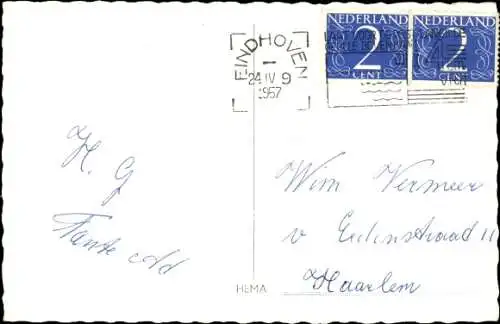 NEDERLAND NEDERLAND
2 2
CENT
EINDHOVEN
24 IV 9
1957
H. G
Tante Ad
Wim Vermeer
v
Haarlem
HEMA